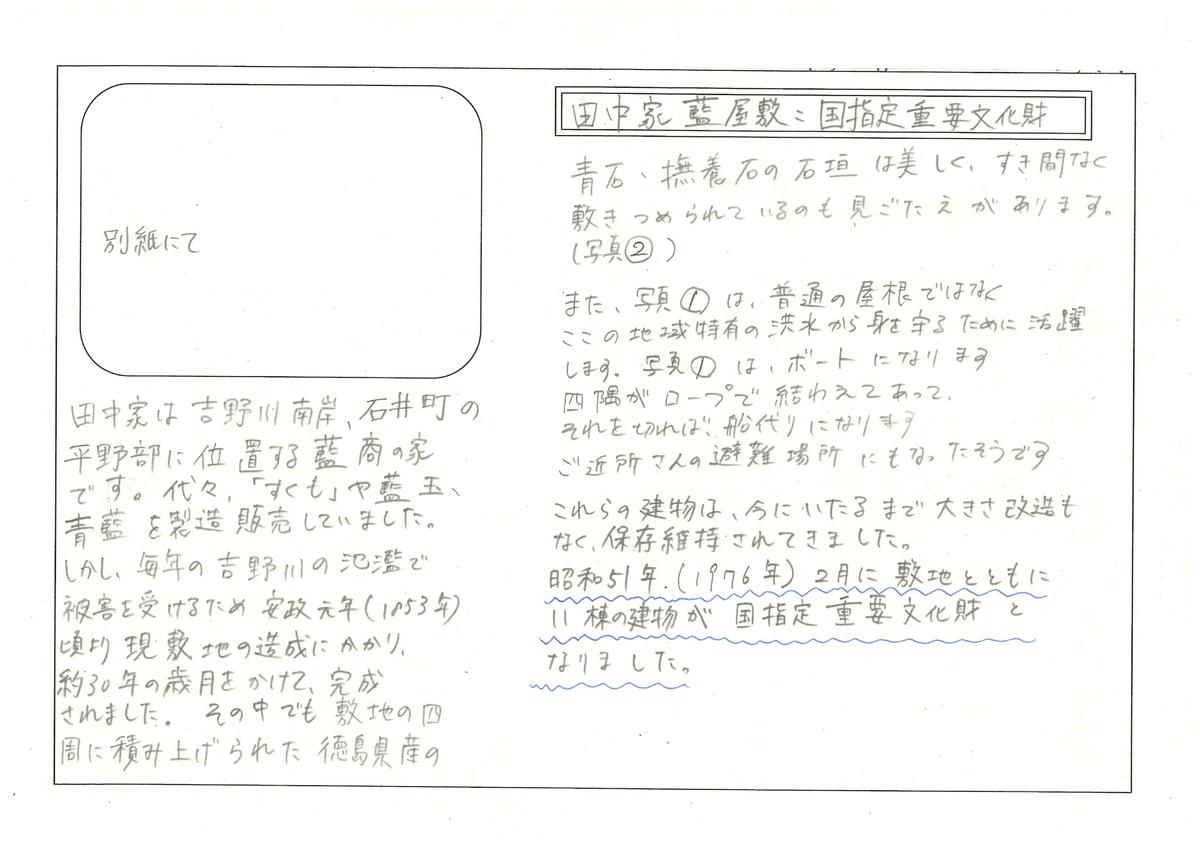 田中家藍屋敷:国指定重要文化財
別紙にて
田中家は吉野川南岸、石井町の
平野部に位置する藍商の家
です。代々、「すくも」や藍玉、
青藍を製造販売していました。
しかし、毎年の吉野川の氾濫で
被害を受けるため安政元年(1853年)
頃より現敷地の造成にかかり、
約30年の歳月をかけて、完成
されました。その中でも敷地の四
周に積み上げられた徳島県産の
青石、撫養石の石垣は美しく、すき間なく
敷きつめられているのも見ごたえがあります。
(写真②)
また、写真①は、普通の屋根ではなく
ここの地域特有の洪水から身を守るために活躍
します。写真①は、ボートになります
四隅がロープで結わえてあって、
それを切れば、船代りになります
ご近所さんの避難場所にもなったそうです
これらの建物は、今にいたるまで大きさ改造も
なく、保存維持されてきました。
昭和51年.(1976年)2月に敷地とともに
11棟の建物が国指定重要文化財と
なりました。